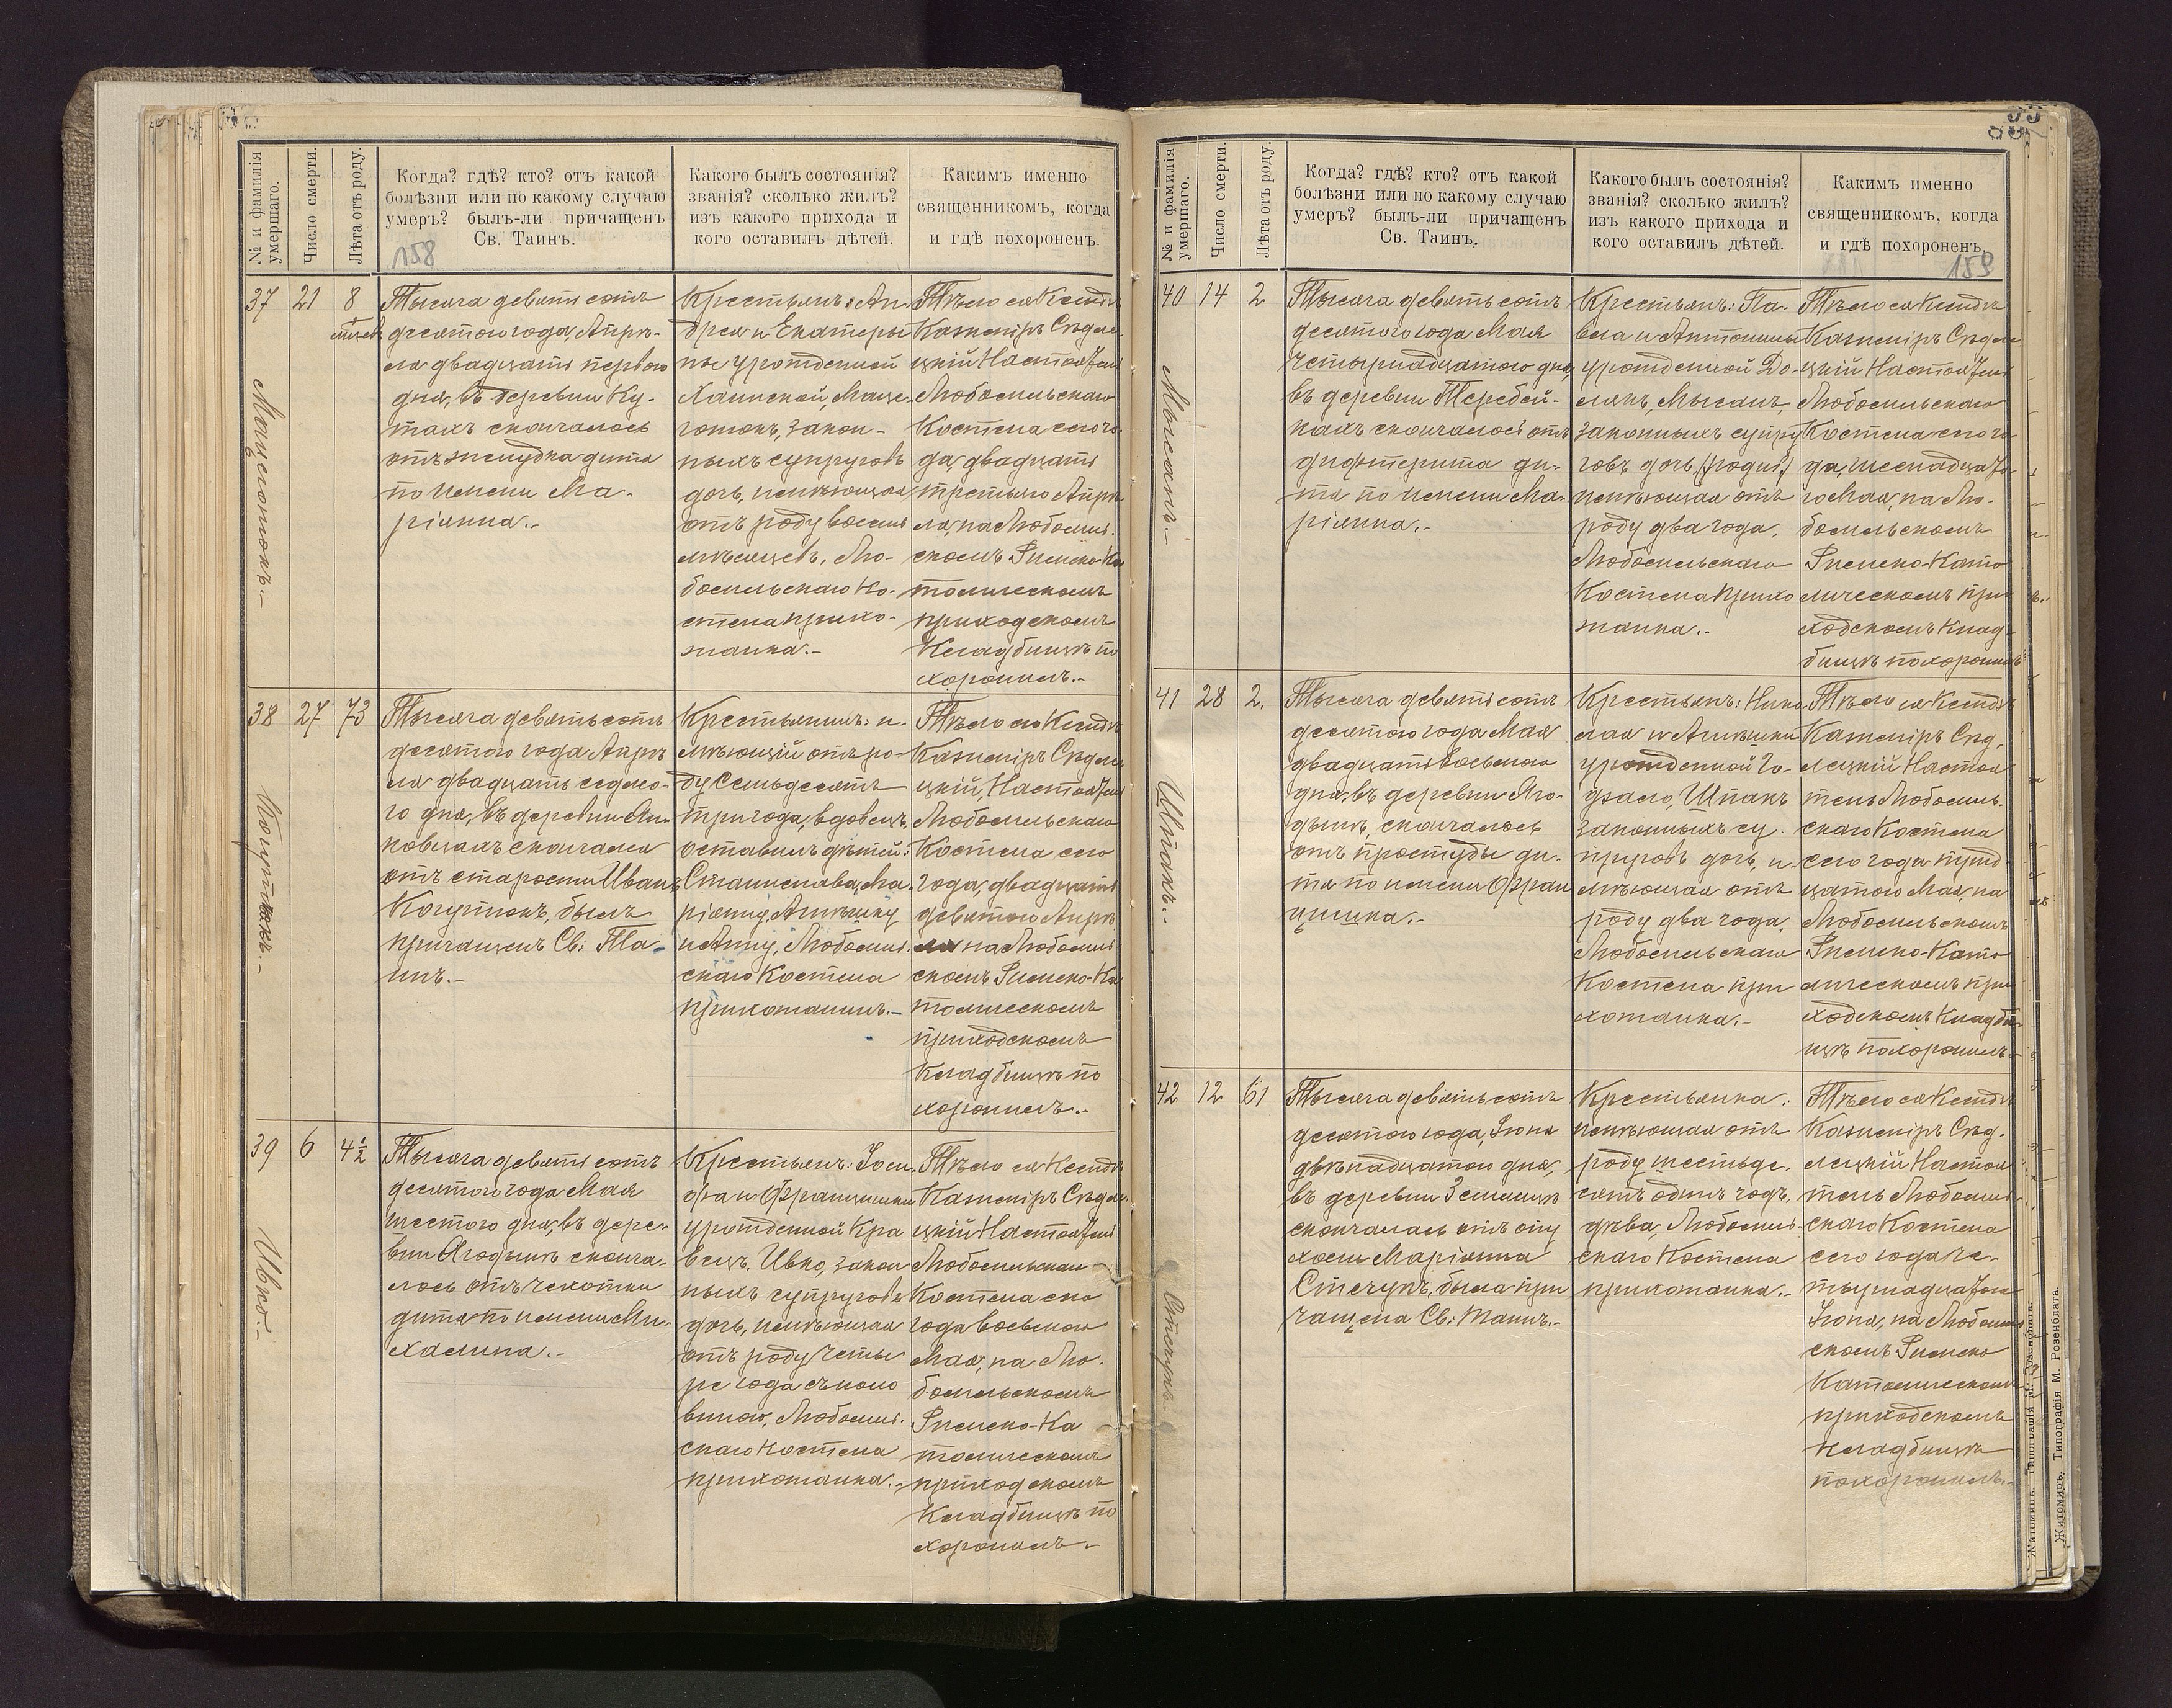 № и фамилія умершаго.
Число смерти.
Лѣта отъ роду.
Когда? гдѣ? кто? отъ какой
болѣзни или по какому случаю
умеръ? былъ-ли причащенъ
Св. Таинъ.
158
Какого былъ состоянія?
званія? сколько жилъ?
изъ какого прихода и
кого оставилъ дѣтей.
Какимъ именно
священникомъ, когда
и гдѣ похороненъ.
37
21
8
мѣсяц.
Тысяча девятьсотъ
десятого года, Апрѣ-
ля двадцать первого
дня, въ деревни Ку-
тахъ скончалось
отъ желудка дитя
по имени Ма-
ріянна.-
Крестьянъ: Ан-
дрея и Екатери
ны урожденной
законъ-
ныхъ супруговъ
дочь, имѣющая
отъ роду восемь
мѣсяцевъ, Лю-
бомльскаго Ко-
стела прихо-
жанка.-
Тѣло ея Ксендзъ
Казимiръ Сѣдле-
цкій Настоятель
Любомльскаго
Костела сего го-
да, двадцать
третьяго Апрѣ
ля, на Любомль-
скомъ Римско-Ка
толическомъ
приходскомъ
Кладбищѣ по
хоронилъ.-
38
27
73
Тысяча девятьсотъ
десятого года Апрѣ
ля двадцать седмо-
го дня, въ деревни Ян-
ковцахъ скончался
отъ старости Иванъ
былъ
причащенъ Св: Та-
инъ.-
Крестьянинъ: и-
мѣющій отъ ро-
ду семьдесятъ
три года, вдовецъ,
оставилъ дѣтей:
Станислава, Ма-
ріянну, Агнѣшку
и Анну, Любомль-
скаго Костела
прихожанинъ.-
Тѣло его Ксендзъ
Казимiръ Сѣдле-
цкій, Настоятель
Любомльскаго
Костела сего
года, двадцать
девятого Апрѣ
ля на Любомль-
скомъ Римско-Ка
толическомъ
приходскомъ
Кладбищѣ по
хоронилъ.-
39
6
4½
Ивко.-
Тысяча девятьсотъ
десятого года Мая
шестого дня, въ дере-
вни Ягодынѣ сконча-
лось отъ чахотки
дитя по имени Ми-
халина.-
Крестьянъ: Іоси-
фа и Францишки
урожденной Кра
вецъ, Ивко, закон
ныхъ супруговъ
дочь, имѣющая
отъ роду четы
ре года съ поло
виною, Любомль-
скаго Костела
прихожанка.-
Тѣло ея Ксендзъ
Казимiръ Сѣдле-
цкій Настоятель
Любомльскаго
Костела сего
года восьмого
Мая, на Лю-
бомльскомъ
Римско-Ка
толическомъ
приходскомъ
Кладбищѣ по
хоронилъ.-
№ и фамилія умершаго.
Число смерти.
Лѣта отъ роду.
Когда? гдѣ? кто? отъ какой
болѣзни или по какому случаю
умеръ? былъ-ли причащенъ
Св. Таинъ.
Какого былъ состоянія?
званія? сколько жилъ?
изъ какого прихода и
кого оставилъ дѣтей.
Какимъ именно
священникомъ, когда
и гдѣ похороненъ.
159
40
14
2
Тысяча девятьсотъ
десятого года Мая
четырнадцатого дня,
въ деревни Теребей-
кахъ скончалось отъ
дифтерита ди-
тя по имени Ма-
ріянна.-
Крестьянъ: Па-
вла и Антонины
урожденной
законныхъ супру
говъ дочь,
имѣющая отъ
роду два года,
Любомльскаго
Костела прихо
жанка.-
Тѣло ея Ксендзъ
Казимiръ Сѣдле-
цкій Настоятель
Любомльскаго
Костела сего го-
да,
го Мая, на Лю-
бомльскомъ
Римско-Като
лическомъ при
ходскомъ Клад-
бищѣ похоронилъ
41
28
2.
Шпакъ.-
Тысяча девятьсотъ
десятого года Мая
двадцать восьмого
дня, въ деревни Яго-
дынѣ, скончалось
отъ простуды ди-
тя по имени Фран
цишка.-
Крестьянъ: Нико-
лая и Агнѣшки
урожденной
Шпакъ
законныхъ су-
пруговъ дочь, и-
мѣющая отъ
роду два года,
Любомльскаго
Костела при
хожанка.-
Тѣло ея Ксендзъ
Казимiръ Сѣд-
лецкій Настоя
тель Любомль-
скаго Костела
сего года трид-
цатого Мая, на
Любомльскомъ
Римско-Като
лическомъ при
ходскомъ Кладби-
щѣ похоронилъ.-
42
12
61
Стечукъ.-
Тысяча девятьсотъ
десятого года, Іюня
двѣнадцатого дня,
въ деревни
скончалась отъ опу
холи Маріянна
Стечукъ, была при
чащена Св: Таинъ.-
Крестьянка:
имѣющая отъ
роду шестьде-
сятъ одинъ годъ,
дѣва, Любомль-
скаго Костела
прихожанка.-
Тѣло ея Ксендзъ
Казимiръ Сѣд-
лецкій Настоя
тель Любомль-
скаго Костела
сего года че-
тырнадцатого
Іюня, на Любомль
скомъ Римско
Католическомъ
приходскомъ
Кладбищѣ
похоронилъ.-
Житомиръ. Типографія М. Розенблата.